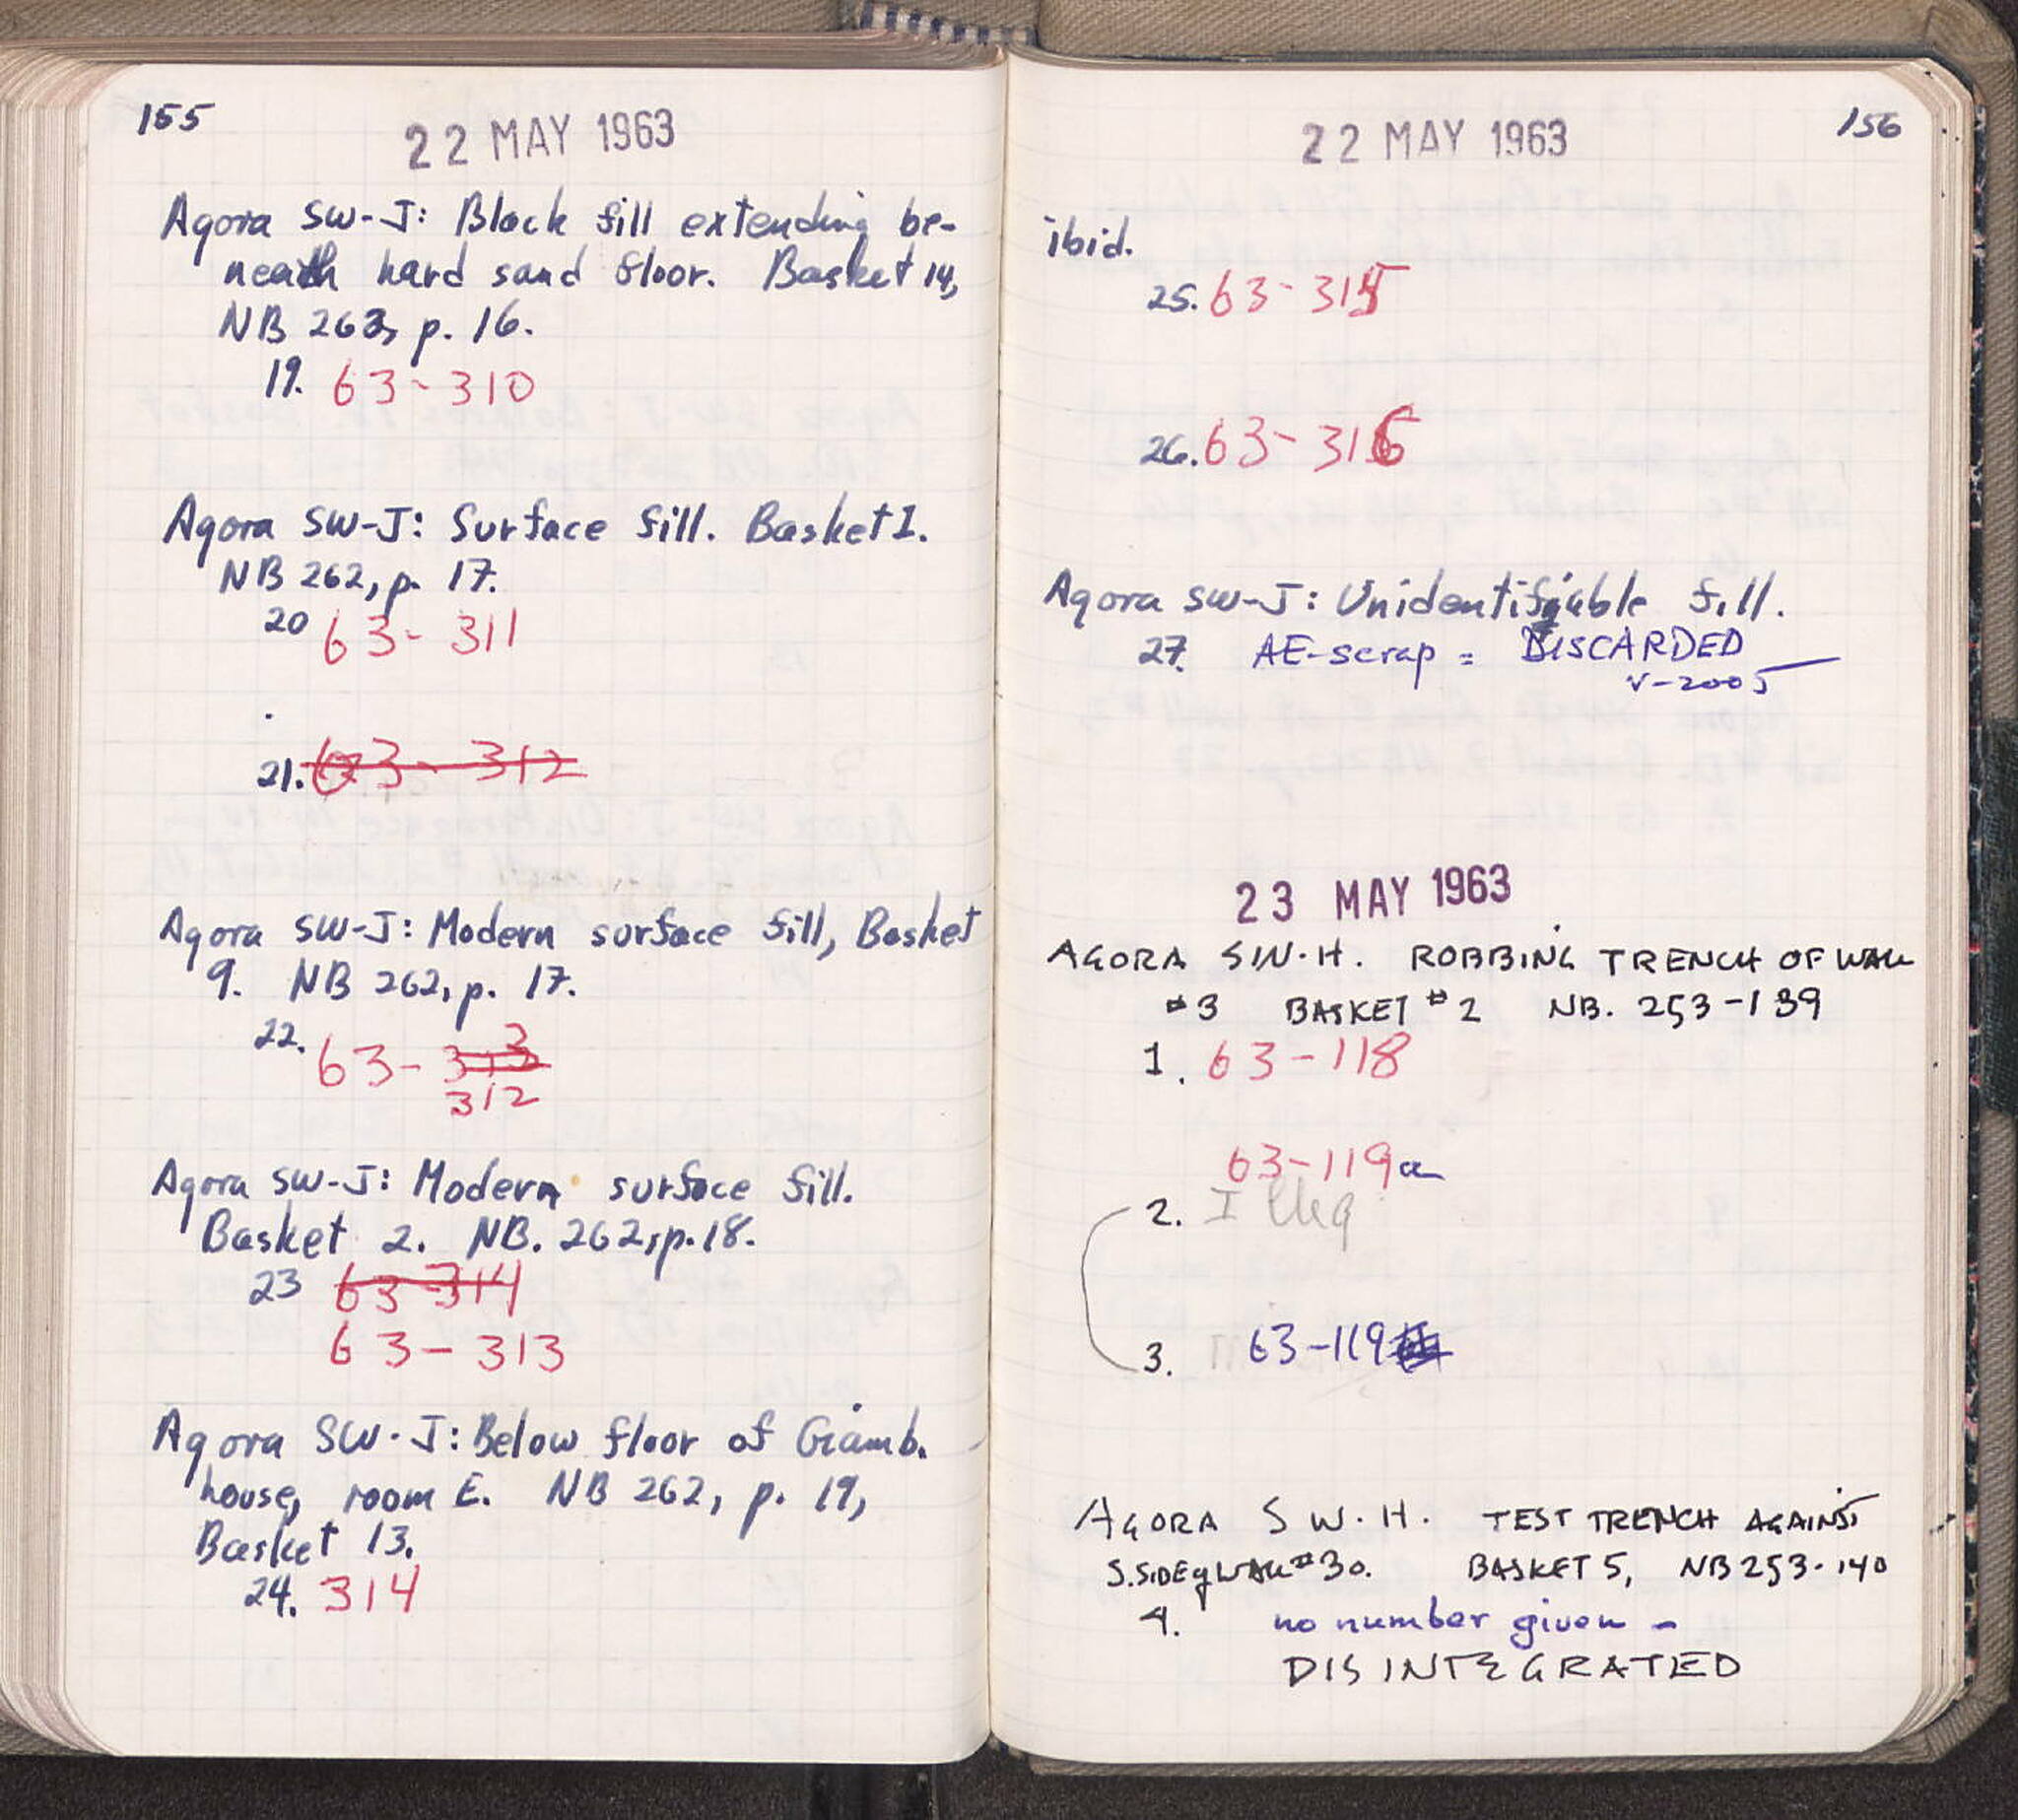 155
22 MAY 1963
Agora SW-J: Black fill extending be-
neath hard sand floor. Basket 14,
NB 262, p. 16.
19. 63-310
Agora SW-J: Surface fill. Basket 1.
NB 262, p. 17.
20 63-311
21. 63-312
Agora SW-J: Modern surface fill, Basket
9. NB 262, p. 17.
22. 63-313
312
Agora SW-J: Modern surface fill.
Basket 2. NB. 262, p. 18.
23 63-314
63-313
Agora SW-J: Below floor of Giamb.
house, room E. NB 262, p. 19,
Basket 13.
24. 314
22 MAY 1963
156
ibid.
25. 63-315
26. 63-316
Agora SW-J: Unidentifiable fill.
27. AE-scrap = DISCARDED
V-2005
23 MAY 1963
AGORA SW.H. ROBBING TRENCH OF WALL
#3 BASKET #2 NB. 253-139
1. 63-118
63-119a
2. Illeg
3. 63-119
AGORA SW.H. TEST TRENCH AGAINST
S. SIDE of WALL #30. BASKET 5, NB 253-140
4. no number given -
DISINTEGRATED